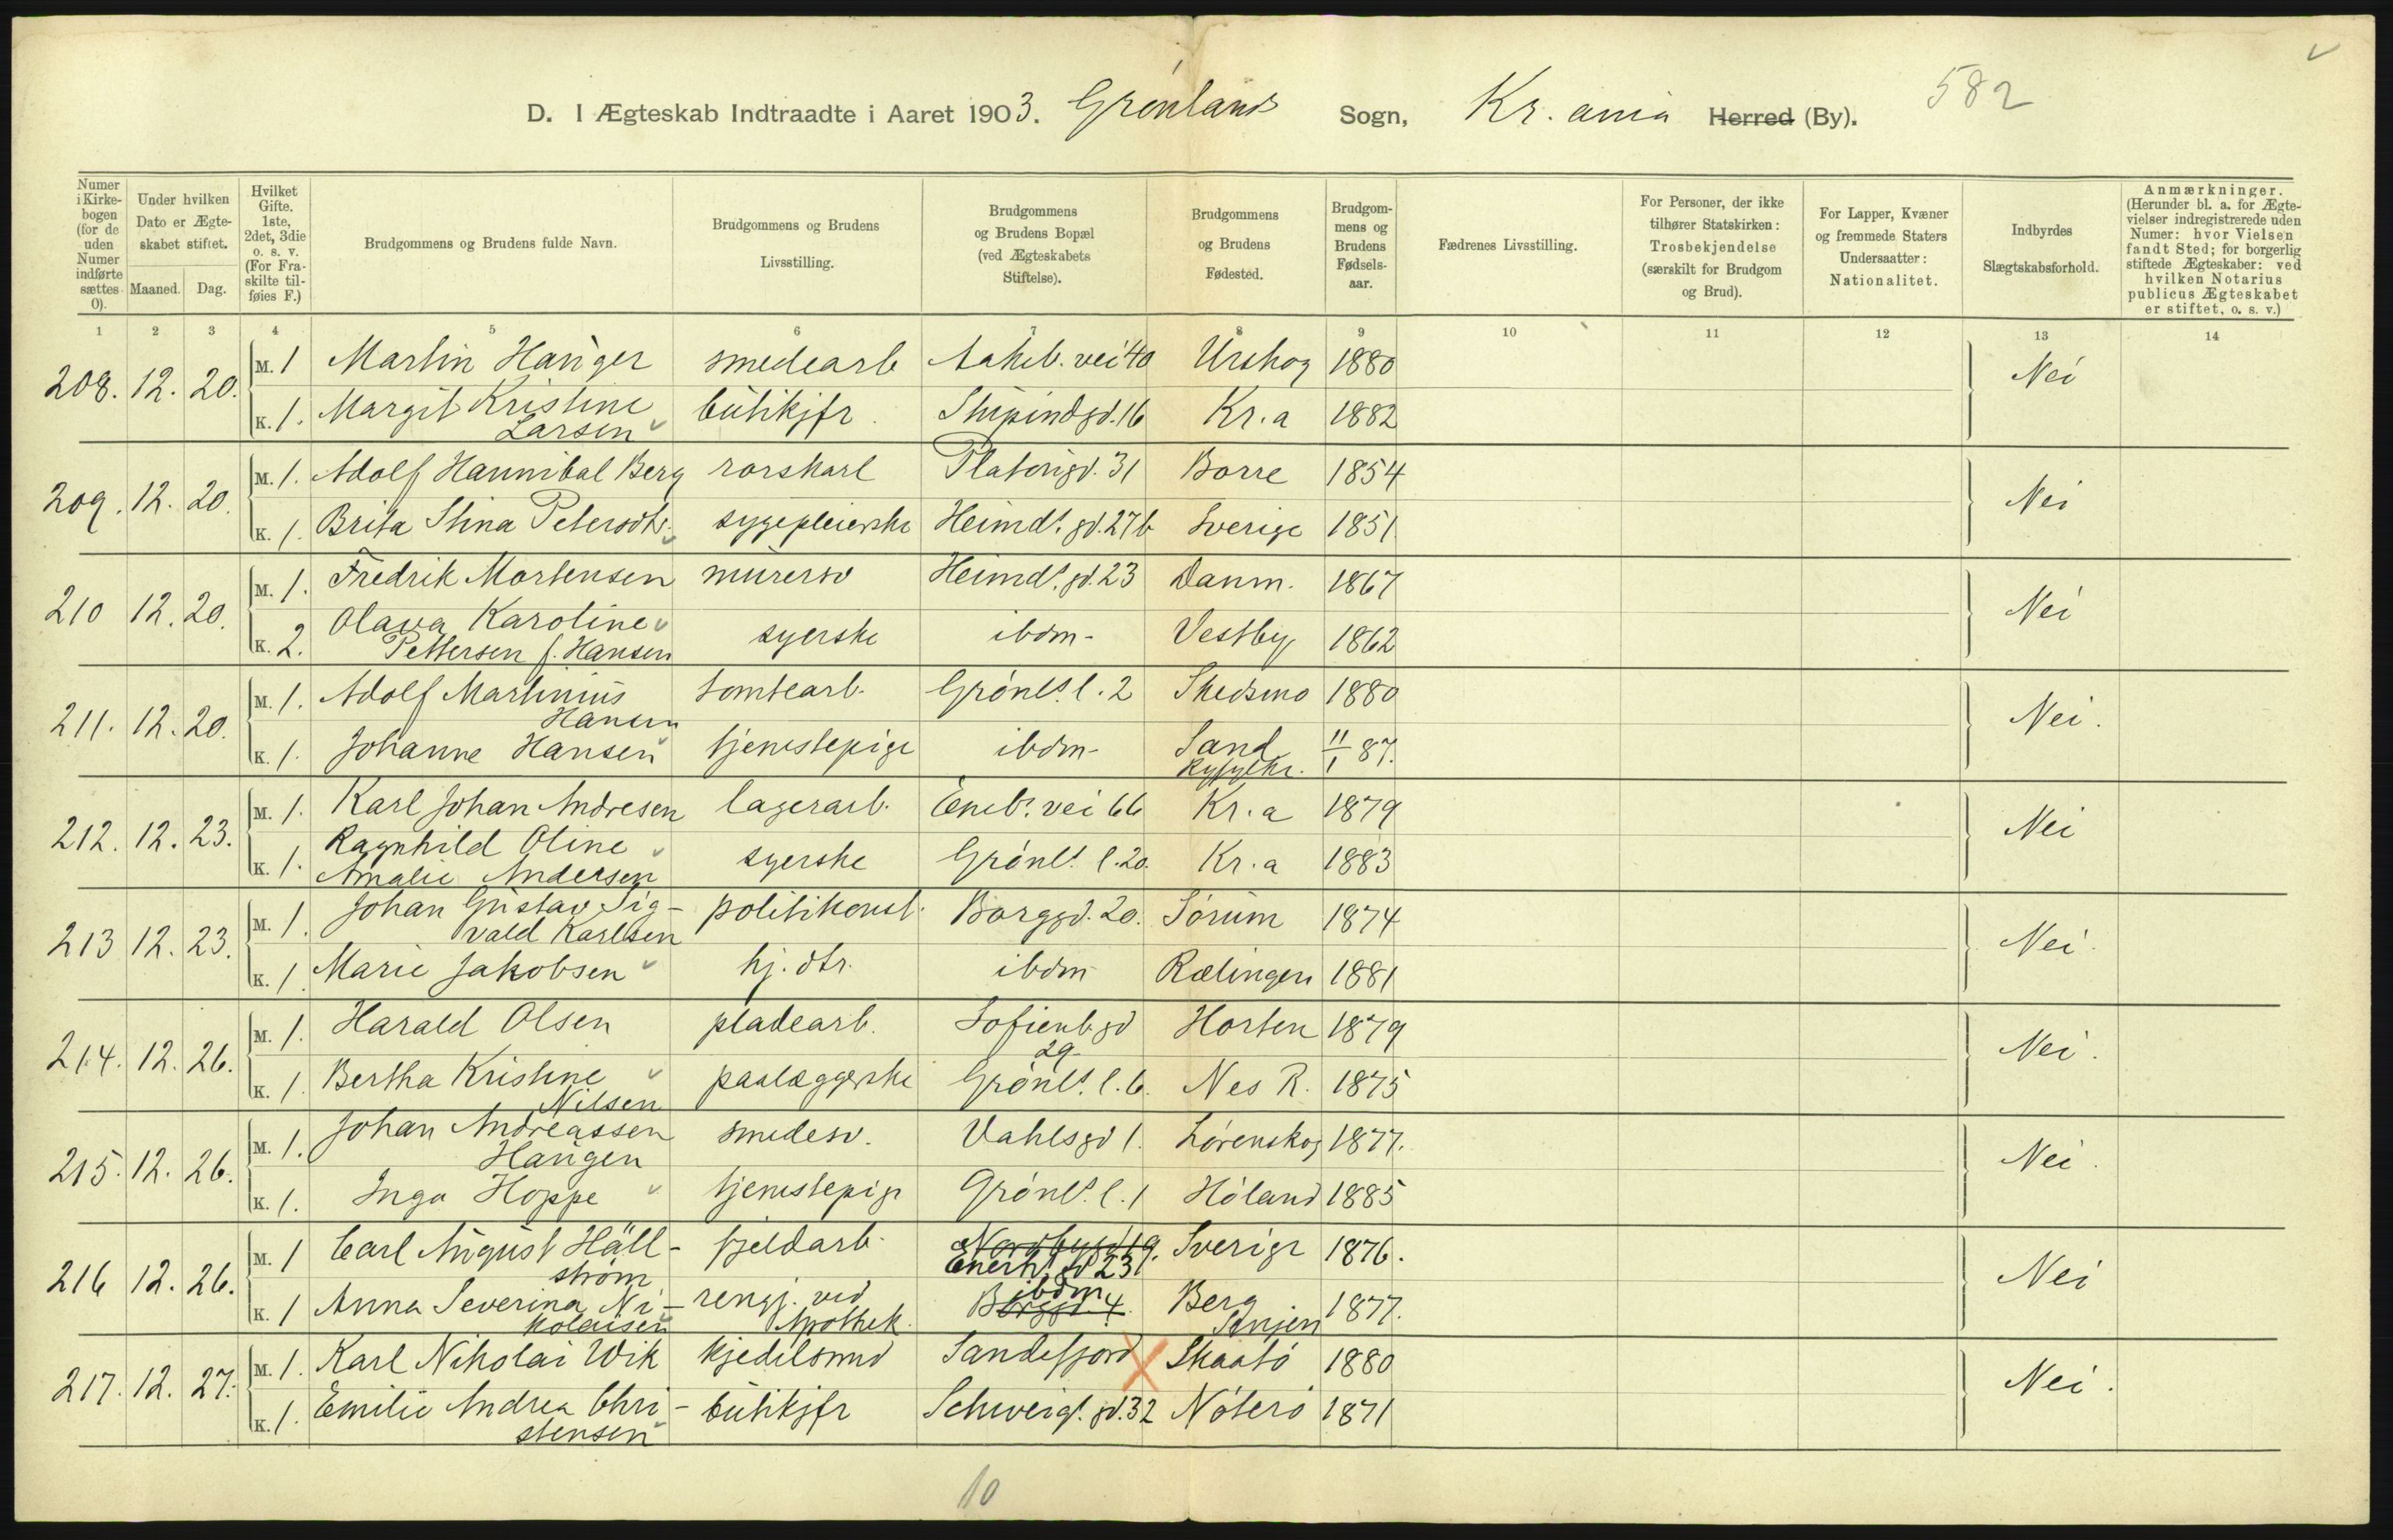 582
D. I Ægteskab Indtraadte i Aaret 1903. Grønlands Sogn, Kr.ania Herred (By).
Numer i Kirkebogen (for de uden Numer indførte sættes 0).
Under hvilken Dato er Ægteskabet stiftet.
Maaned. Dag.
Hvilket Gifte. 1ste, 2det, 3die o. s. v. (For Fraskilte tilføies F.)
Brudgommens og Brudens fulde Navn.
Brudgommens og Brudens Livsstilling.
Brudgommens og Brudens Bopæl (ved Ægteskabets Stiftelse).
Brudgommens og Brudens Fødested.
Brudgommens og Brudens Fødselsaar.
Fædrenes Livsstilling.
For Personer, der ikke tilhører Statskirken: Trosbekjendelse (særskilt for Brudgom og Brud).
For Lapper, Kvæner og fremmede Staters Undersaatter: Nationalitet.
Indbyrdes Slægtskabsforhold.
Anmærkninger. (Herunder bl. a. for Ægtevielser indregistrerede uden Numer: hvor Vielsen fandt Sted; for borgerlig stiftede Ægteskaber: ved hvilken Notarius publicus Ægteskabet er stiftet, o. s. v.)
1 2 3 4 5 6 7 8 9 10 11 12 13 14
208. 12. 20. M. 1 Martin Hauger smedearb Aakeb. vei 40 Urskog 1880 Nei
K. 1. Margit Kristine Larsen butikjfr. Stupindgd. 16 Kr.a 1882
209. 12. 20. M. 1. Adolf Hannibal Berg rorskarl Platougd. 31 Borre 1854 Nei
K. 1. Brita Stina Petersdtr. sygepleierske Heimds. gd. 27b Sverige 1851
210 12. 20. M. 1. Fredrik Mortensen murersv Heimds. gd. 23 Danm. 1867 Nei
K. 2. Olava Karoline Pettersen f. Hansen syerske ibdm- Vestby 1862
211. 12. 20. M. 1. Adolf Martinius Hansen tomtearb. Grønls. l. 2 Skedsmo 1880 Nei.
K. 1. Johanne Hansen tjenestepige ibdm- Sand Ryfylke. 11/1 87.
212. 12. 23. M. 1. Karl Johan Andresen lagerarb. Eneb. vei 66 Kr.a 1879 Nei
K. 1. Ragnhild Oline Amalie Andersen syerske Grønls. l. 20. Kr.a 1883
213 12. 23. M. 1. Johan Gustav Sigvald Karlsen politikonst. Borggd. 20. Sørum 1874 Nei
K. 1. Marie Jakobsen hj. dtr. ibdm Rælingen 1881
214. 12. 26. M. 1. Harald Olsen pladearb. Sofienb.gd 29 Horten 1879 Nei.
K. 1. Bertha Kristine Nilsen paalæggerske Grønls. l. 6. Nes R. 1875
215. 12. 26. M. 1. Johan Andreassen Haugen smedesv. Vahlsgd 1. Lørenskog 1877. Nei.
K. 1. Inga Hoppe tjenestepige Grønls. l. 1 Høland 1885
216 12. 26. M. 1 Carl August Hällström fjeldarb. Nordbygd 19. Enerhs. gd 23 Sverige 1876. Nei
K. 1 Anna Severina Nikolaisen rengj. ved Apothek. Borggd. 4 ibdm Berg Senjen 1877.
217. 12. 27. M. 1. Karl Nikolai Wik kjedelsmed Sandefjord Skaatø 1880 Nei.
K. 1. Emilie Andrea Christensen butikjfr Schweigs. gd. 32 Nøterø 1871
10